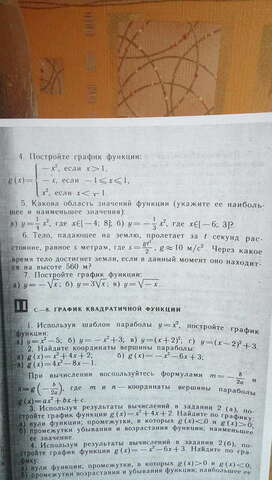 4. Постройте график функции:
g(x)= { −x², если x>1,
−x, если −1≤x≤1,
x², если x<−1.
5. Какова область значений функции (укажите ее наиболь-
шее и наименьшее значения):
а) y=¼x², где x∈[−4; 8]; б) y=−⅓x², где x∈[−6; 3]?
6. Тело, падающее на землю, пролетает за t секунд рас-
стояние, равное s метрам, где s=gt²/2, g≈10 м/с². Через какое
время тело достигнет земли, если в данный момент оно находит-
ся на высоте 560 м?
7. Постройте график функции:
а) y=−√x; б) y=3√x; в) y=√−x.
С—8. ГРАФИК КВАДРАТИЧНОЙ ФУНКЦИИ
1. Используя шаблон параболы y=x², постройте график
функции:
а) y=x²−5; б) y=−x²+3; в) y=(x+2)²; г) y=(x−2)²+3.
2. Найдите координаты вершины параболы:
а) g(x)=x²+4x+2; б) g(x)=−x²−6x+3;
в) g(x)=4x²−8x−1.
При вычислении воспользуйтесь формулами m=−b/2a и
n=g(−b/2a), где m и n—координаты вершины параболы
g(x)=ax²+bx+c.
3. Используя результаты вычислений в задании 2 (а), по-
стройте график функции g(x)=x²+4x+2. Найдите по графику:
а) нули функции; промежутки, в которых g(x)<0 и g(x)>0;
б) промежутки убывания и возрастания функции; наименьшее
ее значение.
4. Используя результаты вычислений в задании 2(б), по-
стройте график функции g(x)=−x²−6x+3. Найдите по гра-
фику:
а) нули функции; промежутки, в которых g(x)>0 и g(x)<0;
б) промежутки возрастания и убывания функции; наибольшее ее